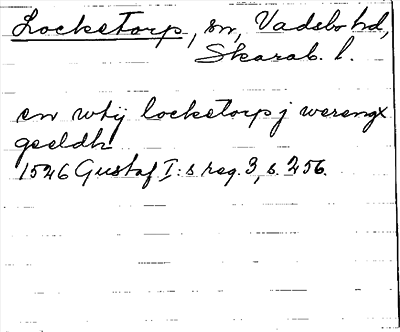 Locketorp, sn, Vadsbo hd,
Skarab. l.
en wtij locketorp j werengx
geeldh
1526 Gustaf I:s reg. 3, s. 256.